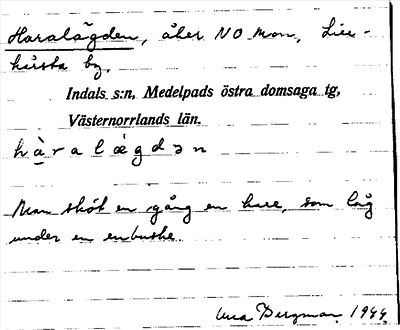 Haralägden, åker NO Mon, Lie-
kårsta by.
Indals s:n, Medelpads östra domsaga tg,
Västernorrlands län.
hàralägdən
Man sköt en gång en hare, som låg
under en enbuske.
Bergman 1944